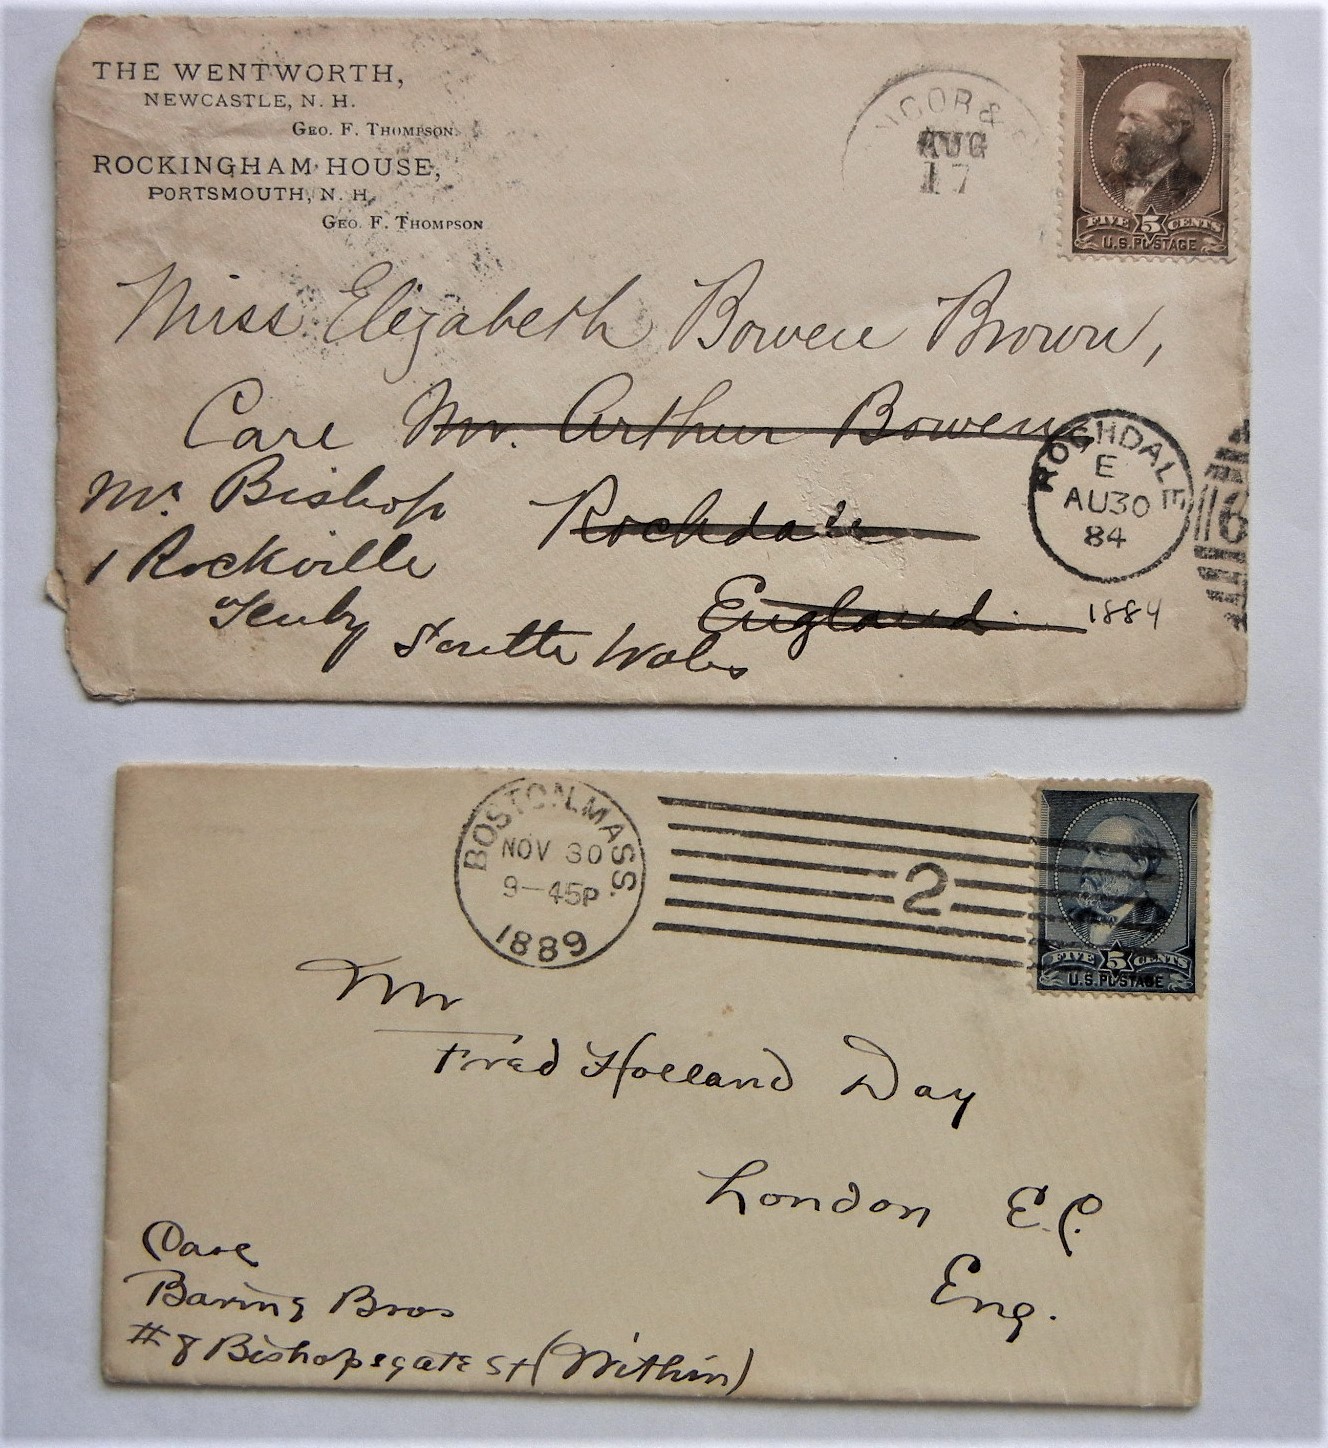 THE WENTWORTH,
NEWCASTLE, N. H.
GEO. F. THOMPSON.
ROCKINGHAM HOUSE,
PORTSMOUTH, N. H.
GEO. F. THOMPSON
AUG
17
FIVE 5 CENTS
U.S. POSTAGE
Miss Elizabeth Bowen Brown,
Care Mr. Arthur Bowen
Mr. Bishop
Rochdale
1 Rockville
England
Tenby
South Wales
ROCHDALE
E
AU30
84
1884
BOSTON, MASS.
NOV 30
9-45P
1889
2
FIVE 5 CENTS
U.S. POSTAGE
Mr
Fred Holland Day
London E.C.
Eng.
Care
Baring Bros
#8 Bishopsgate St (Within)